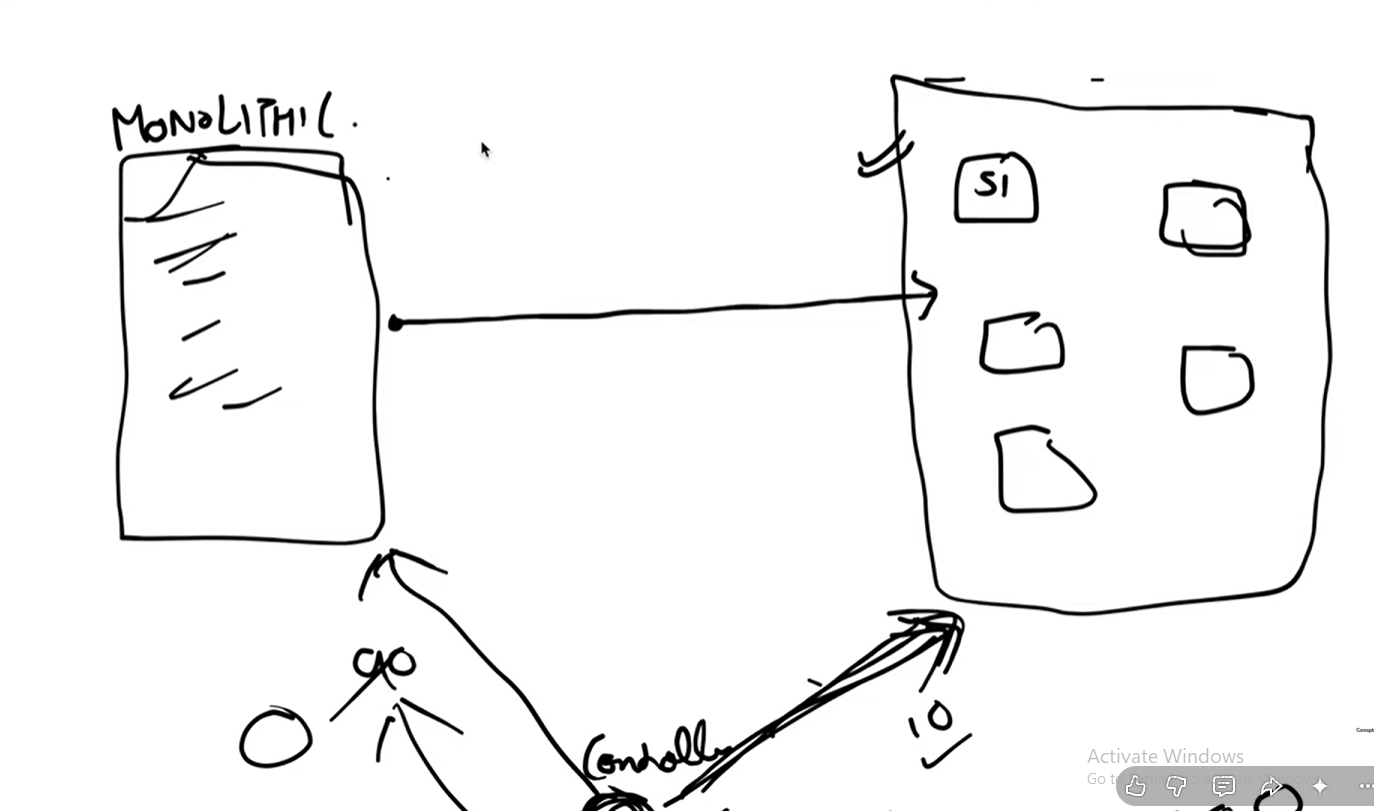 MONOLITHIC.
S1
90
10
Controller
Activate Windows